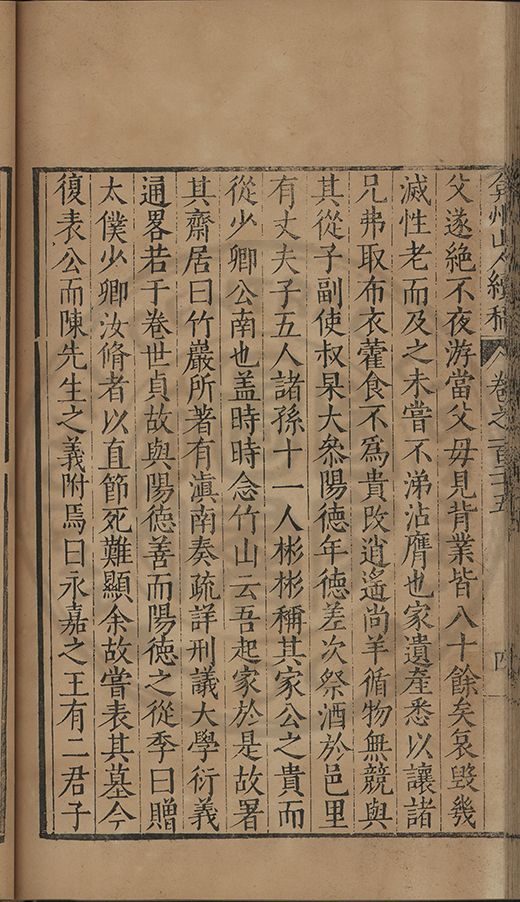 弇州山人續稿 卷之一百三十五 四
父遂絕不夜游當父毋見背業皆八十餘矣哀毀幾
滅性老而及之未嘗不涕沾膺也家遺產悉以讓諸
兄弗取布衣藿食不為貴改逍遙尚羊循物無競與
其從子副使叔杲大叅陽德年德差次祭酒於邑里
有丈夫子五人諸孫十一人彬彬稱其家公之貴而
從少卿公南也盖時時念竹山云吾起家於是故署
其齋居曰竹巖所著有滇南奏疏詳刑議大學衍義
通畧若干卷世貞故與陽德善而陽德之從季曰贈
太僕少卿汝脩者以直節死難顯余故嘗表其墓今
復表公而陳先生之義附焉曰永嘉之王有二君子